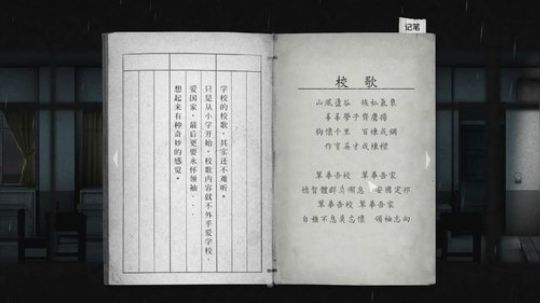 记笔
学校的校歌，其实还不难听。
只是从小学开始，校歌内容就不外乎爱学校、
爱国家，最后更要永怀领袖...
想起来有种奇妙的感觉。
校歌
山風盪谷 松氣象
莘莘學子齊慶揚
胸懷千里 百煉成鋼
作育英才成棟樑
翠華吾校 翠華吾家
德智體群 安 定邦
翠華吾校 翠華吾家
自強不息莫忘懷 領袖志向